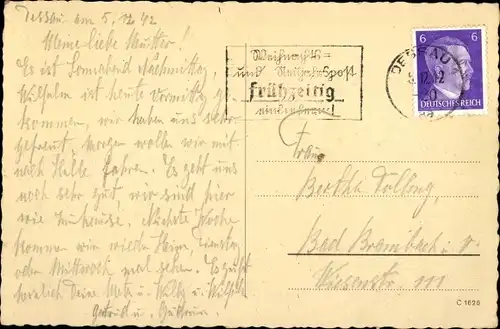 Dessau am 5. 12. 42
Meine liebe Mutter!
Es ist Sonnabend Nachmittag,
Wilhelm ist heute Vormittag ge
kommen, wir haben uns sehr
gefreut, morgen wollen wir mit
nach Halle fahren. Es geht uns
noch sehr gut, wir sind hier
wie zuhause. Nächste Woche
kommen wir wieder Heim, Dienstag
oder Mittwoch mal sehen. Es grüßt
herzlich Deine u. u. Wilhelm
Gertrud u.
Weihnachts-
und Neujahrspost
frühzeitig
einliefern!
DESSAU
5.12.42
6 6
DEUTSCHES REICH
Frau
Bertha
Bad Brambach i. V.
Wiesenstr. 111
C 1626